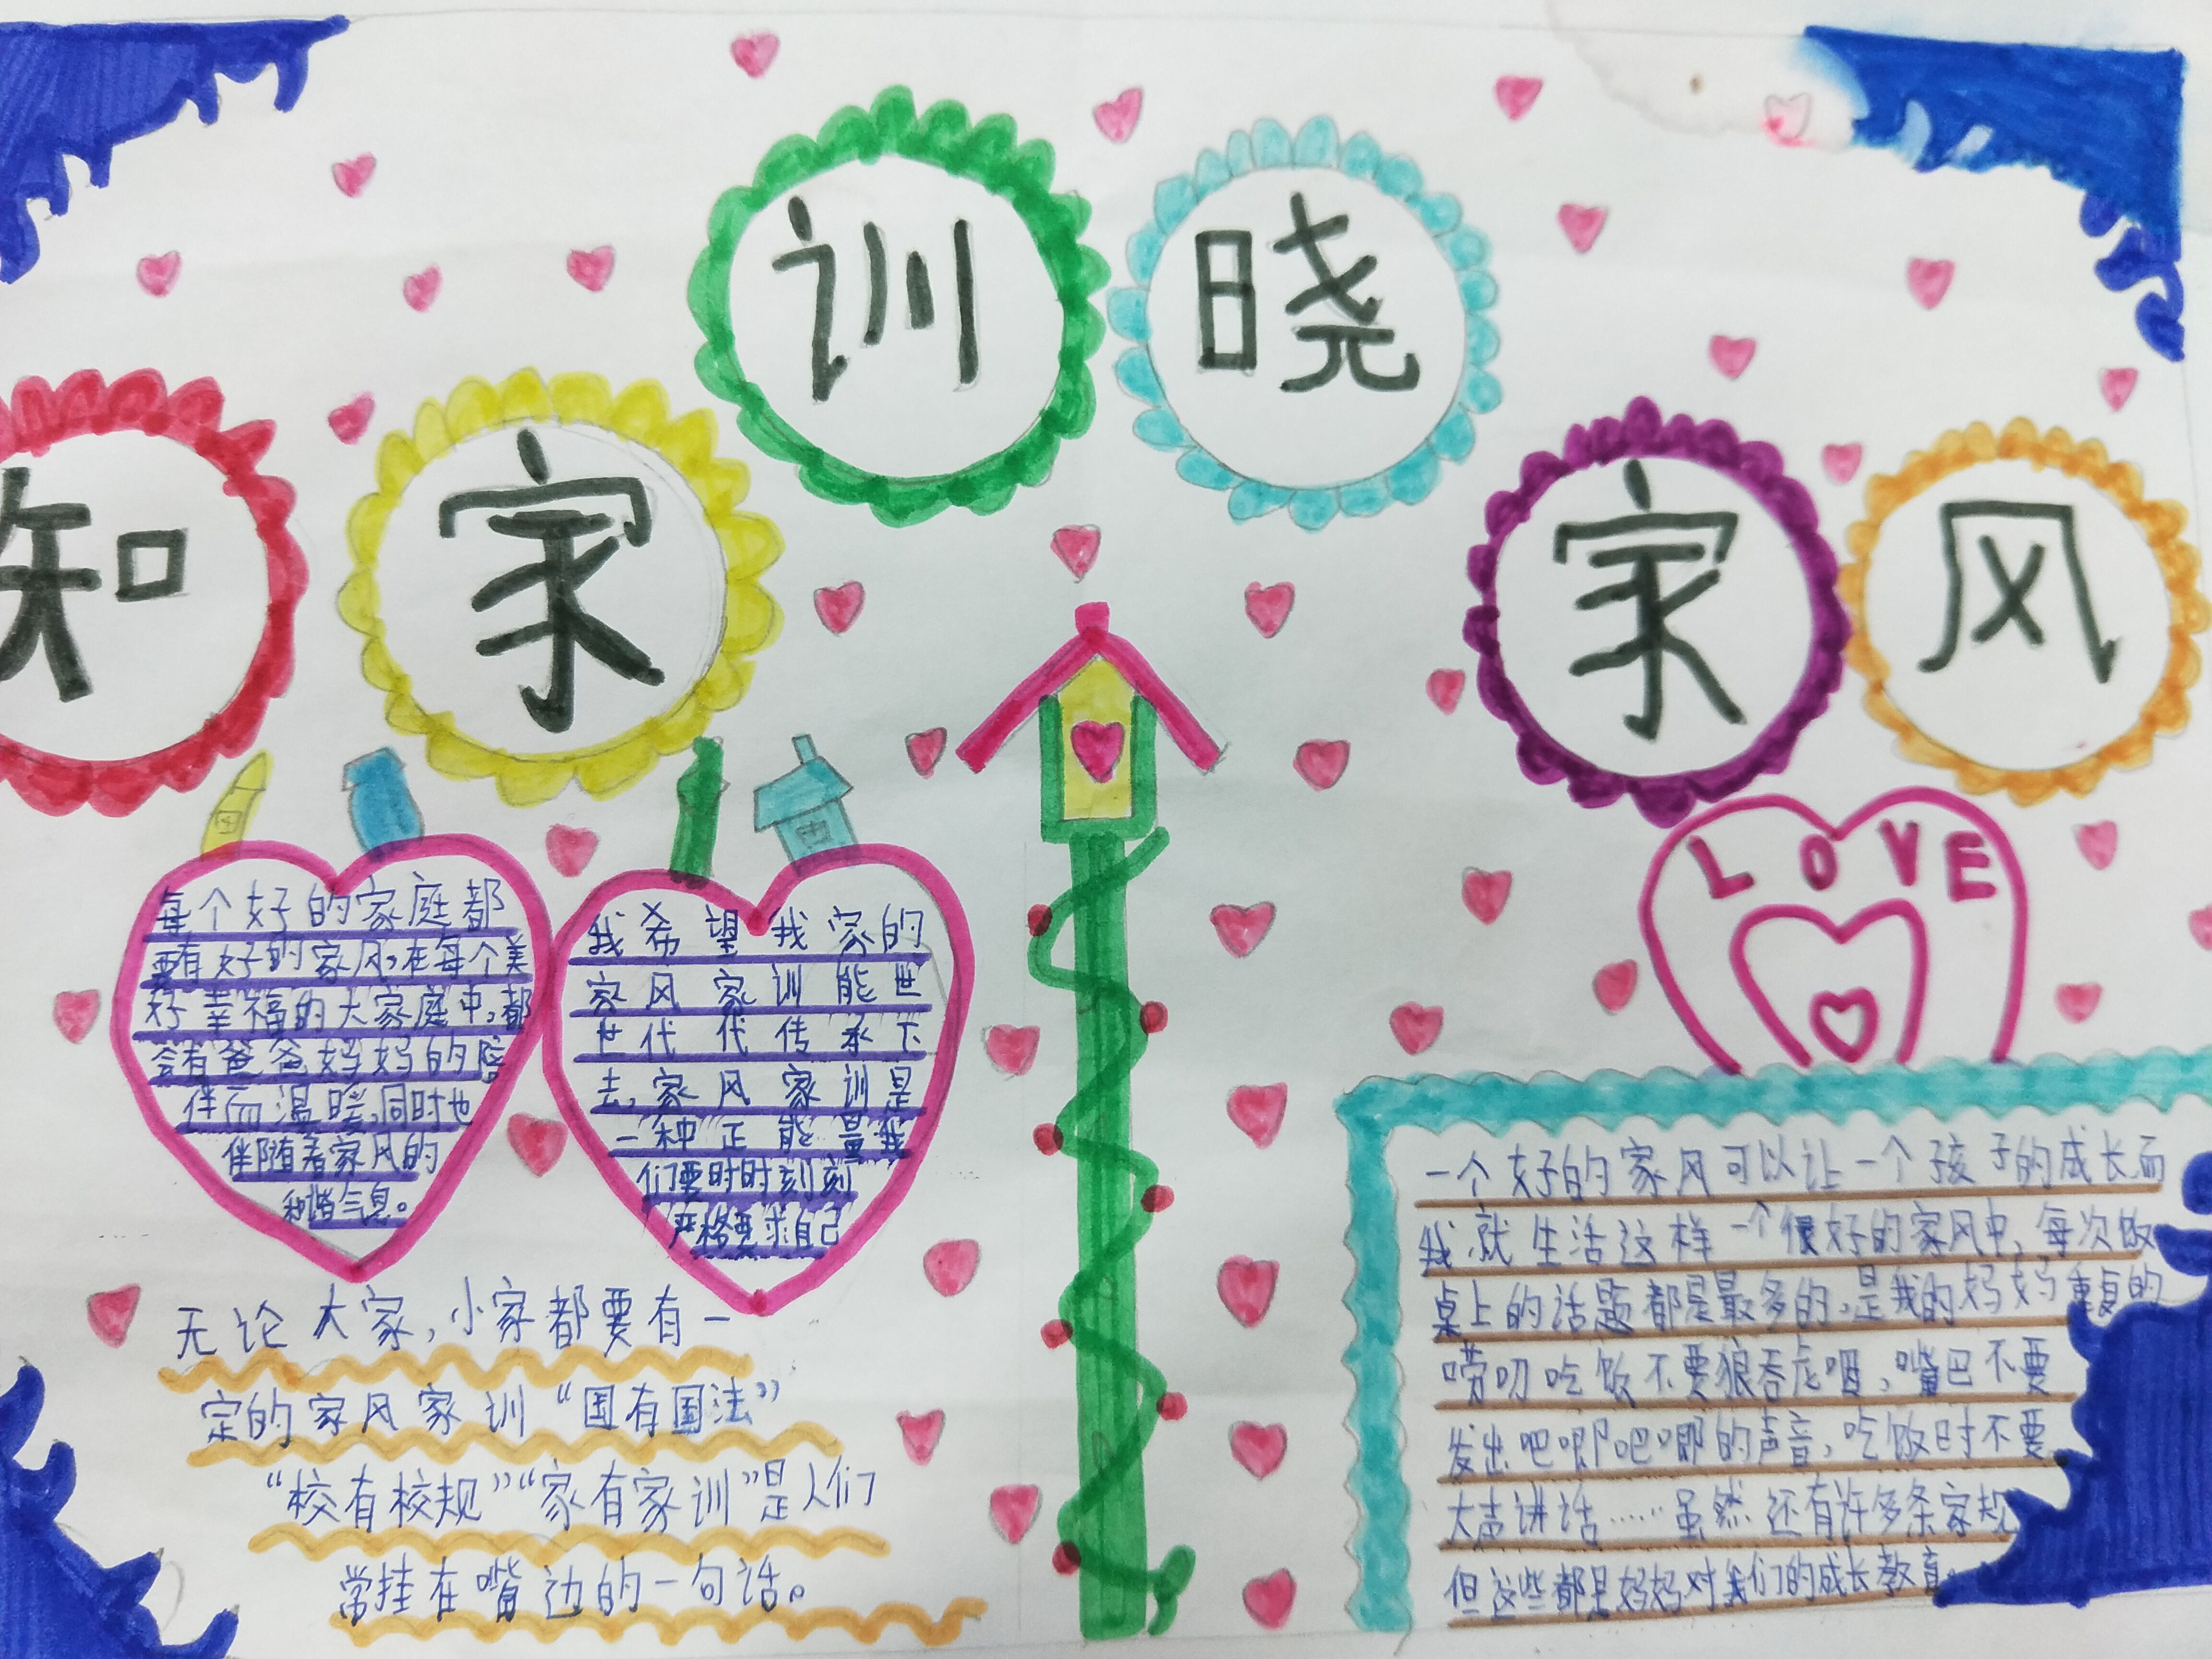 知家训晓家风
LOVE
每个好的家庭都
要有好的家风,在每个美
好幸福的大家庭中,都
会有爸爸妈妈的陪
伴而温暖,同时也
伴随着家风的
和谐气息。
我希望我家的
家风家训能世
世代代传承下
去,家风家训是
一种正能量我
们要时时刻刻
严格要求自己
无论大家,小家都要有一
定的家风家训“国有国法”
“校有校规”“家有家训”是人们
常挂在嘴边的一句话。
一个好的家风可以让一个孩子的成长而
我就生活这样一个很好的家风中,每次饭
桌上的话题都是最多的,是我的妈妈重复的
唠叨吃饭不要狼吞虎咽,嘴巴不要
发出吧唧吧唧的声音,吃饭时不要
大声讲话……虽然还有许多条家规
但这些都是妈妈对我们的成长教育。